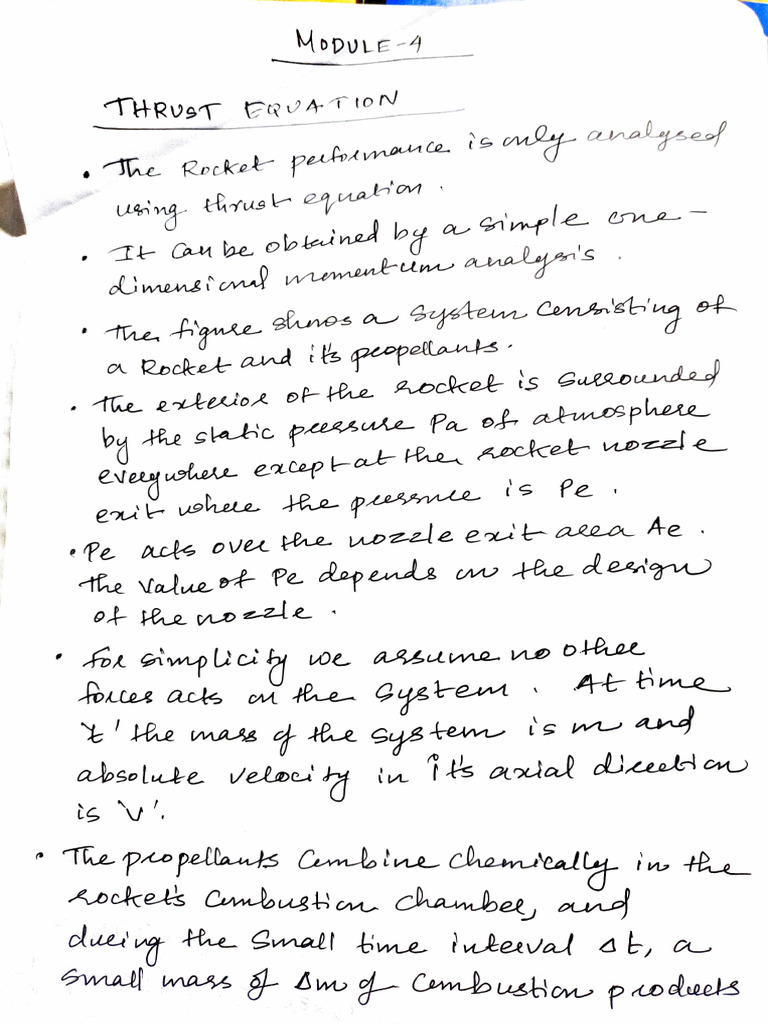 MODULE-4
THRUST EQUATION
• The Rocket performance is only analysed
using thrust equation.
• It can be obtained by a simple one-
dimensional momentum analysis.
• The figure shows a system consisting of
a Rocket and it's propellants.
• The exterior of the rocket is surrounded
by the static pressure Pa of atmosphere
everywhere except at the rocket nozzle
exit where the pressure is Pe.
• Pe acts over the nozzle exit area Ae.
The value of Pe depends on the design
of the nozzle.
• for simplicity we assume no other
forces acts on the system. At time
't' the mass of the system is m and
absolute velocity in it's axial direction
is 'v'.
• The propellants combine chemically in the
rocket's combustion chamber, and
during the small time interval Δt, a
small mass of Δm of combustion products